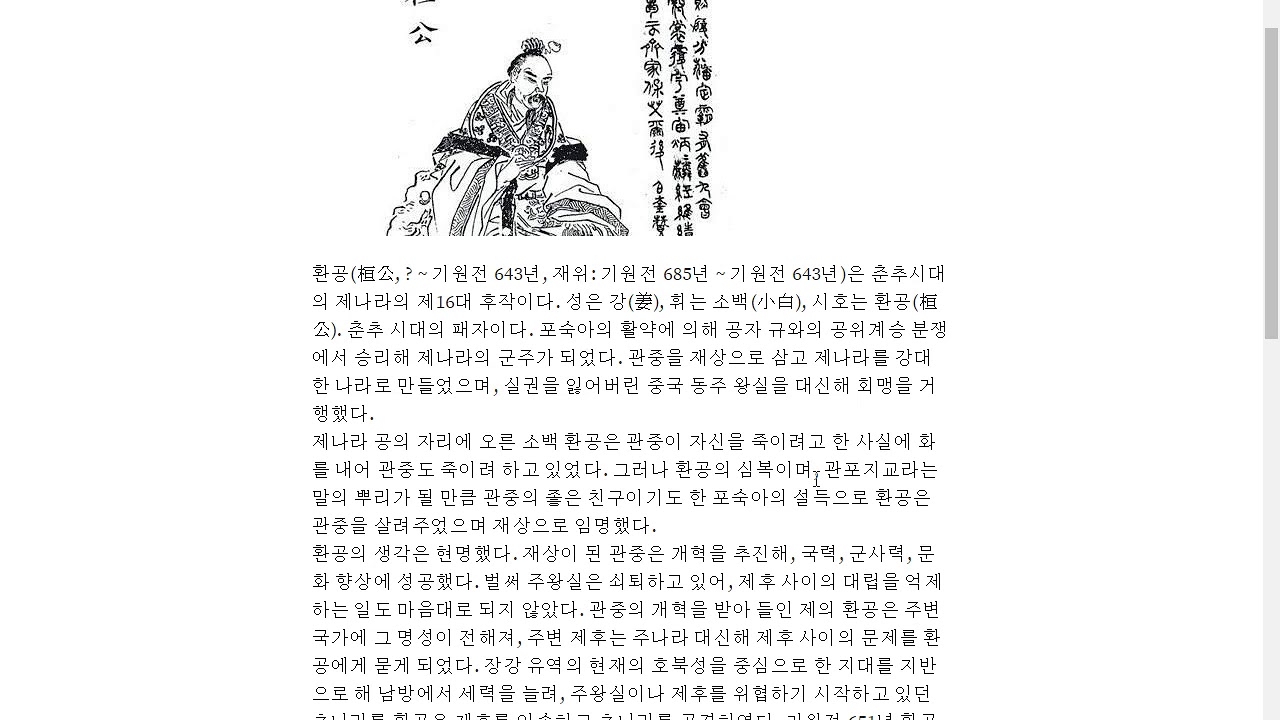 公
환공(桓公, ? ~ 기원전 643년, 재위: 기원전 685년 ~ 기원전 643년)은 춘추시대
의 제나라의 제16대 후작이다. 성은 강(姜), 휘는 소백(小白), 시호는 환공(桓
公). 춘추 시대의 패자이다. 포숙아의 활약에 의해 공자 규와의 공위계승 분쟁
에서 승리해 제나라의 군주가 되었다. 관중을 재상으로 삼고 제나라를 강대
한 나라로 만들었으며, 실권을 잃어버린 중국 동주 왕실을 대신해 회맹을 거
행했다.
제나라 공의 자리에 오른 소백 환공은 관중이 자신을 죽이려고 한 사실에 화
를 내어 관중도 죽이려 하고 있었다. 그러나 환공의 심복이며, 관포지교라는
말의 뿌리가 될 만큼 관중의 좋은 친구이기도 한 포숙아의 설득으로 환공은
관중을 살려주었으며 재상으로 임명했다.
환공의 생각은 현명했다. 재상이 된 관중은 개혁을 추진해, 국력, 군사력, 문
화 향상에 성공했다. 벌써 주왕실은 쇠퇴하고 있어, 제후 사이의 대립을 억제
하는 일도 마음대로 되지 않았다. 관중의 개혁을 받아 들인 제의 환공은 주변
국가에 그 명성이 전해져, 주변 제후는 주나라 대신해 제후 사이의 문제를 환
공에게 묻게 되었다. 장강 유역의 현재의 호북성을 중심으로 한 지대를 지반
으로 해 남방에서 세력을 늘려, 주왕실이나 제후를 위협하기 시작하고 있던